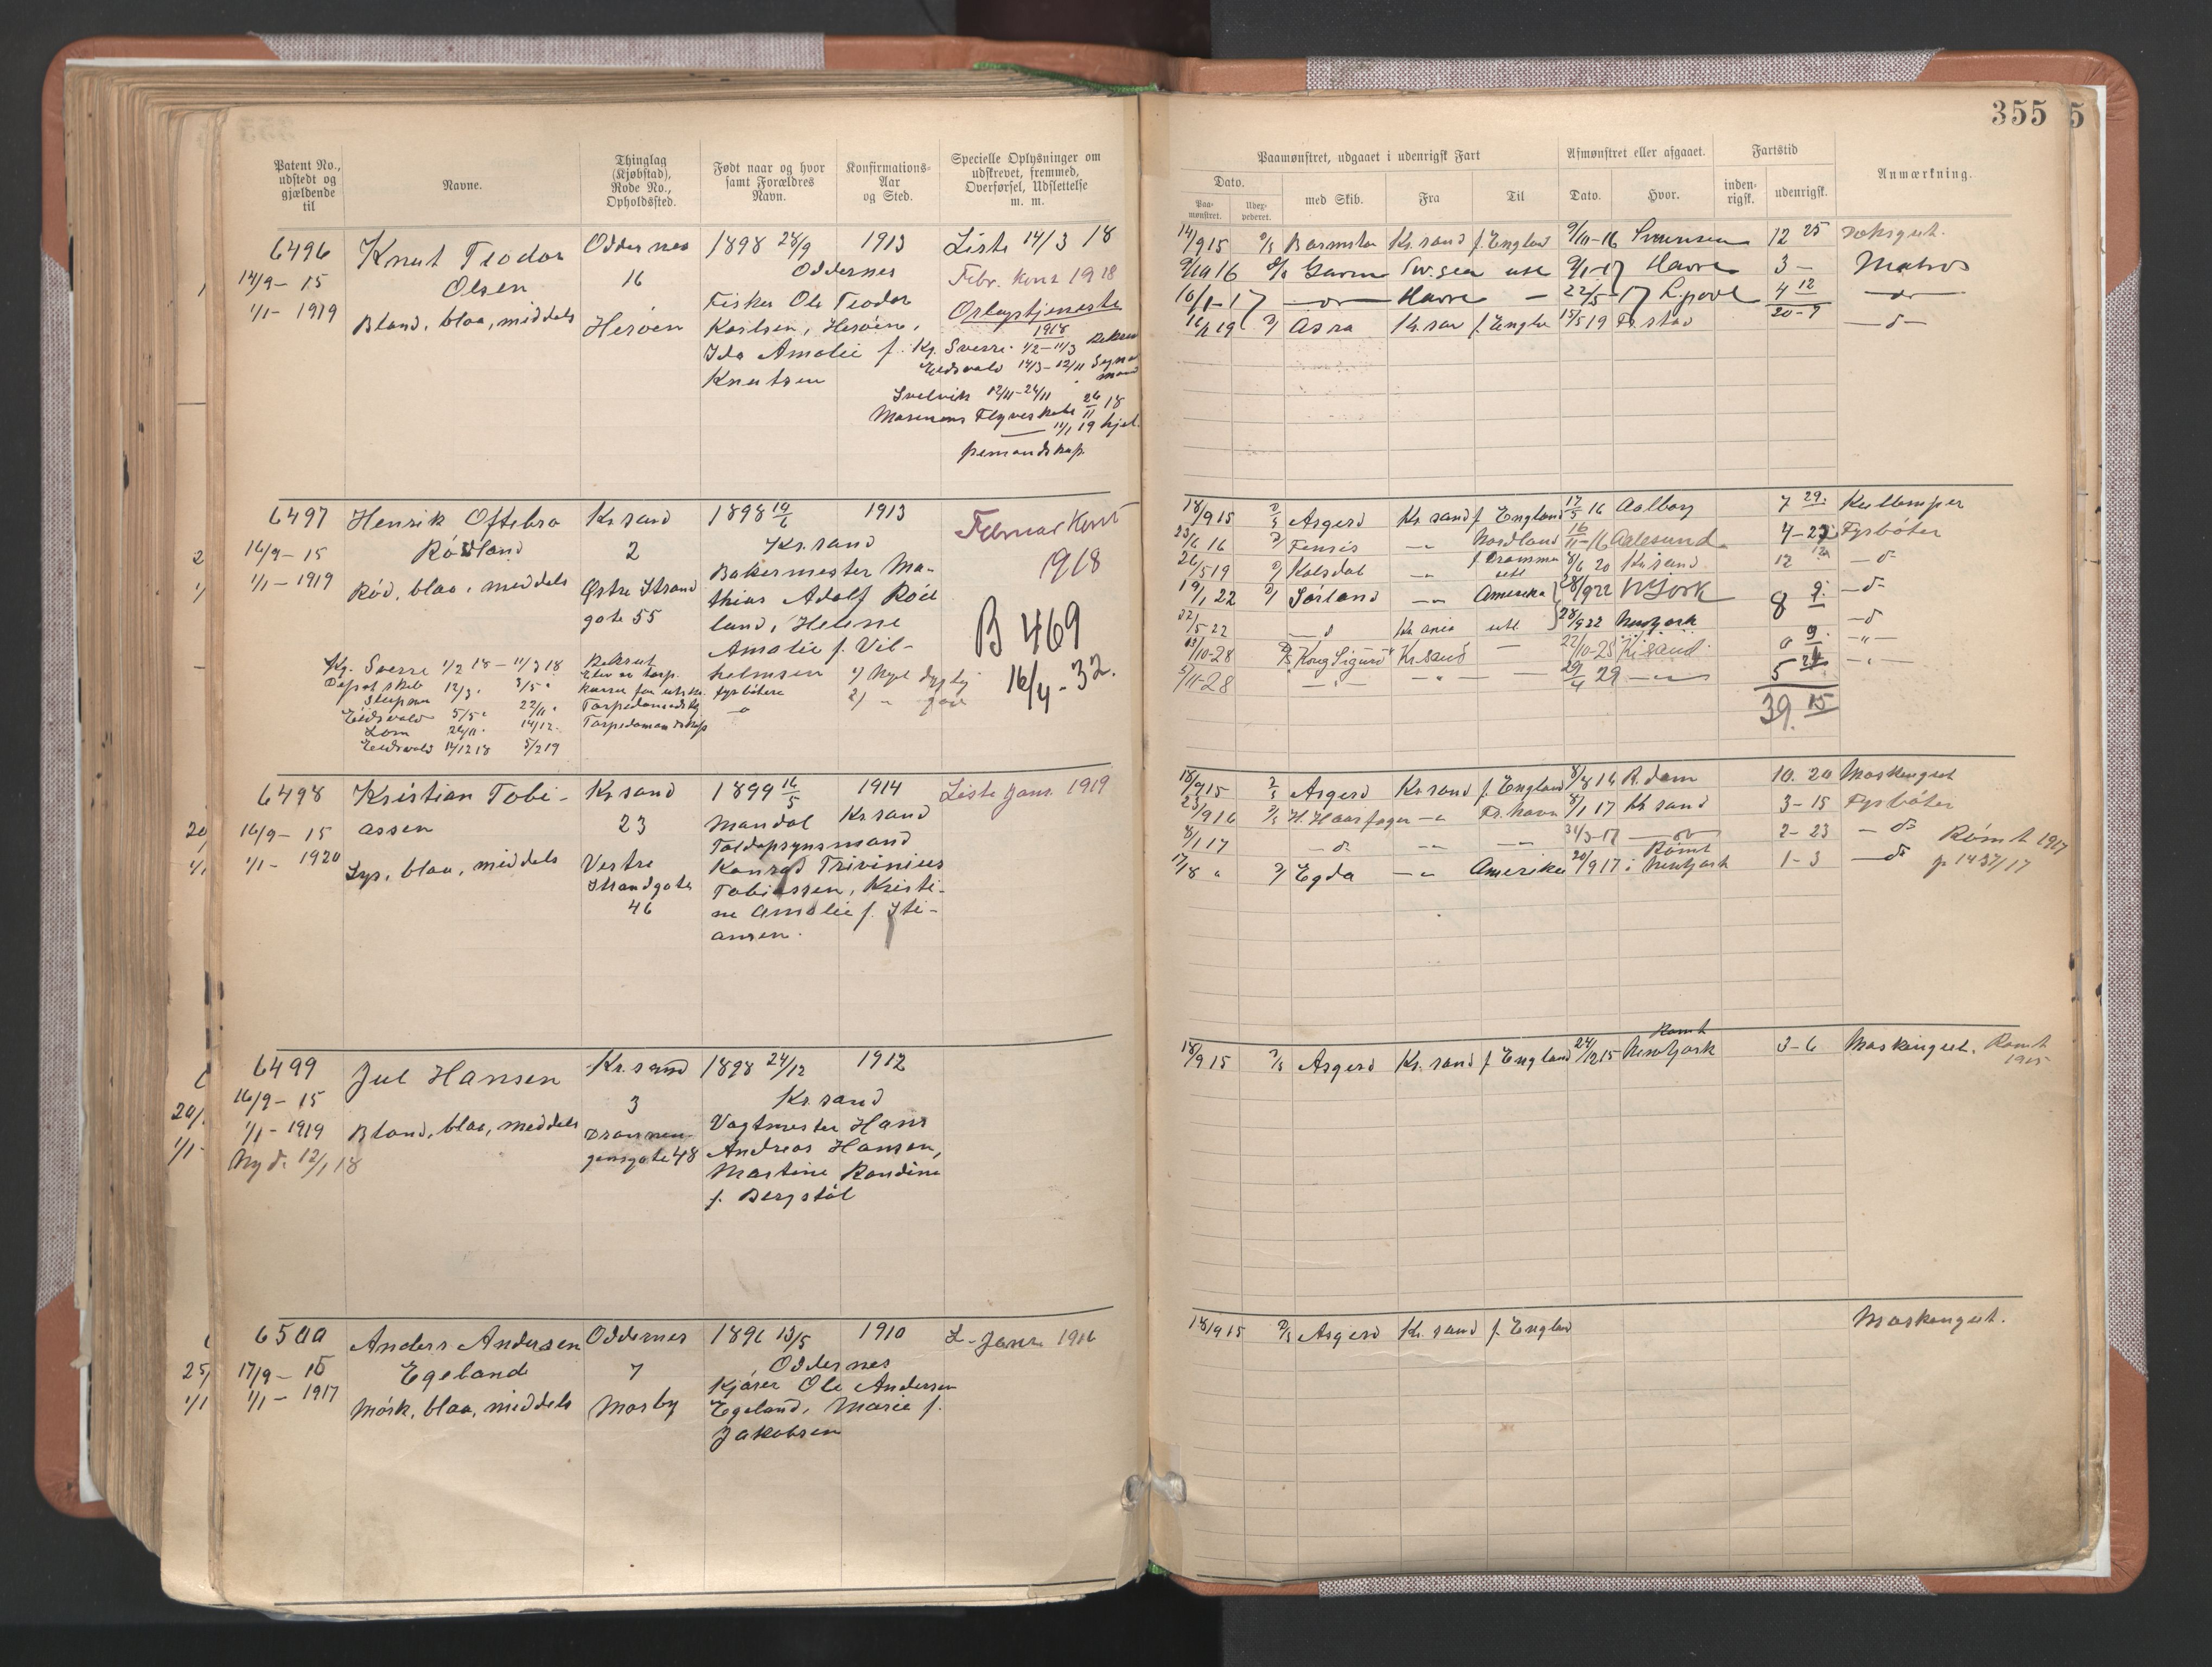 355
Patent No., udstedt og gjældende til
Navne.
Thinglag (Kjøbstad), Rode No., Opholdssted.
Født naar og hvor samt Forældres Navn.
Konfirmations-Aar og Sted.
Specielle Oplysninger om udskrevet, fremmed, Overførsel, Udslettelse m. m.
Paamønstret, udgaaet i udenrigsk Fart
Afmønstret eller afgaaet.
Fartstid
Anmærkning.
Dato.
Paa-mønstret.
Udex-pederet.
med Skib.
Fra
Til
Dato.
Hvor.
inden-rigsk.
udenrigsk.
6496
14/9 - 15
1/1 - 1919
Knut Teodor
Olsen
Blond, blaa, middels
Oddernes
16
Herøen
1898 28/9
1913
Oddernes
Fisker Ole Teodor
Karlsen, Herøen,
Ida Amalie f.
Knutsen
Liste 14/3 18
Febr. kont 1918
Orlogstjeneste
1918
Kg. Sverre 1/2 - 11/3
Eidsvold 14/3 - 12/11
Svelvik 12/11 - 24/11
Marinens Flyveskole 26/11 18
11/1 19 hjel-
pemandskap
14/9 15 D/S Kr.sand f. England 9/10-16 12 25
9/10 16 D/S Garm Sw.sea utl 9/1-17 Havre 3 - Matros
10/1-17 Havre - 22/5-17 Lpool 4 12
20-7
Asra Kr.san f. Engla 15/5 19 Fr.stad
6497
16/9 - 15
1/1 - 1919
Henrik Oftebro
Rödland
Rød, blaa, middels
Kr.sand
2
Østre Strand
gate 55
1898 19/6
1913
Kr.sand
Bakermester Ma-
thias Adolf Röd
land, Helene
Amalie f. Vil-
helmsen
Februar Kont
1918
B 469
16/4 - 32.
Kg. Sverre 1/2 18 - 11/3 18 Rekrut
Eidsvold 5/5
Lom
Eidsvold 14/12 18 5/2 19
18/9 15 D/S Asgerd Kr.sand f. England 17/5 16 Aalborg 7 29. Kullemper
23/6 16 Nordland 16/11-16 Aalesund 4-23 Fyrbøter
26/5 19 Kolsdal f. Drammen utl 8/6 20 Kr.sand 12
19/1 22 Sörland Amerika 28/9 22 N York 8
22/5 22 Kr.ania utl 28/9 22 Newyork
D/S Kong Sigurd Kr.sand 22/10-28 Kr.sand
5/11-28 29/4 29 5 24
39. 15
6498
16/9 - 15
1/1 - 1920
Kristian Tobi-
assen
Lys, blaa, middels
Kr.sand
23
Vestre
Strandgate
46
1899 16/5
1914
Mandal Kr.sand
Toldopsynsmand
Konrad Trivinius
Tobiassen, Kristi-
ne Amalie f. Sti-
ansen.
Liste Janr 1919
18/9 15 D/S Asgerd Kr.sand f. England 8/8 16 R.dam 10. 20 Maskingut
23/9 16 D/S H. Haarfager Fr.havn 8/1 17 Kr.sand 3 - 15 Fyrbøter
8/1 17 2 - 23
17/8 Egda Amerika 20/9 17 Rømt i Newyork 1 - 3 Rømt 1917
p 1437/17
6499
16/9 - 15
1/1 - 1919
Ny d. 12/1 18
Jul Hansen
Blond, blaa, middels
Kr.sand
3
Dronnin
gensgate 48
1898 24/12
1912
Kr.sand
Vagtmester Hans
Andreas Hansen,
Martine Randine
f. Bergstöl
18/9 15 D/S Asgerd Kr.sand f. England 24/12 15 Rømt Newyork 3 - 6 Maskingut. Rømt
1915
6500
17/9 - 15
1/1 - 1917
Anders Andersen
Egeland
Mörk, blaa, middels
Oddernes
7
Mosby
1896 13/5
1910
Oddernes
Kjører Ole Andersen
Egeland, Marie f.
Jakobsen
L. Janr. 1916
18/9 15 D/S Asgerd Kr.sand f. England Maskingut.